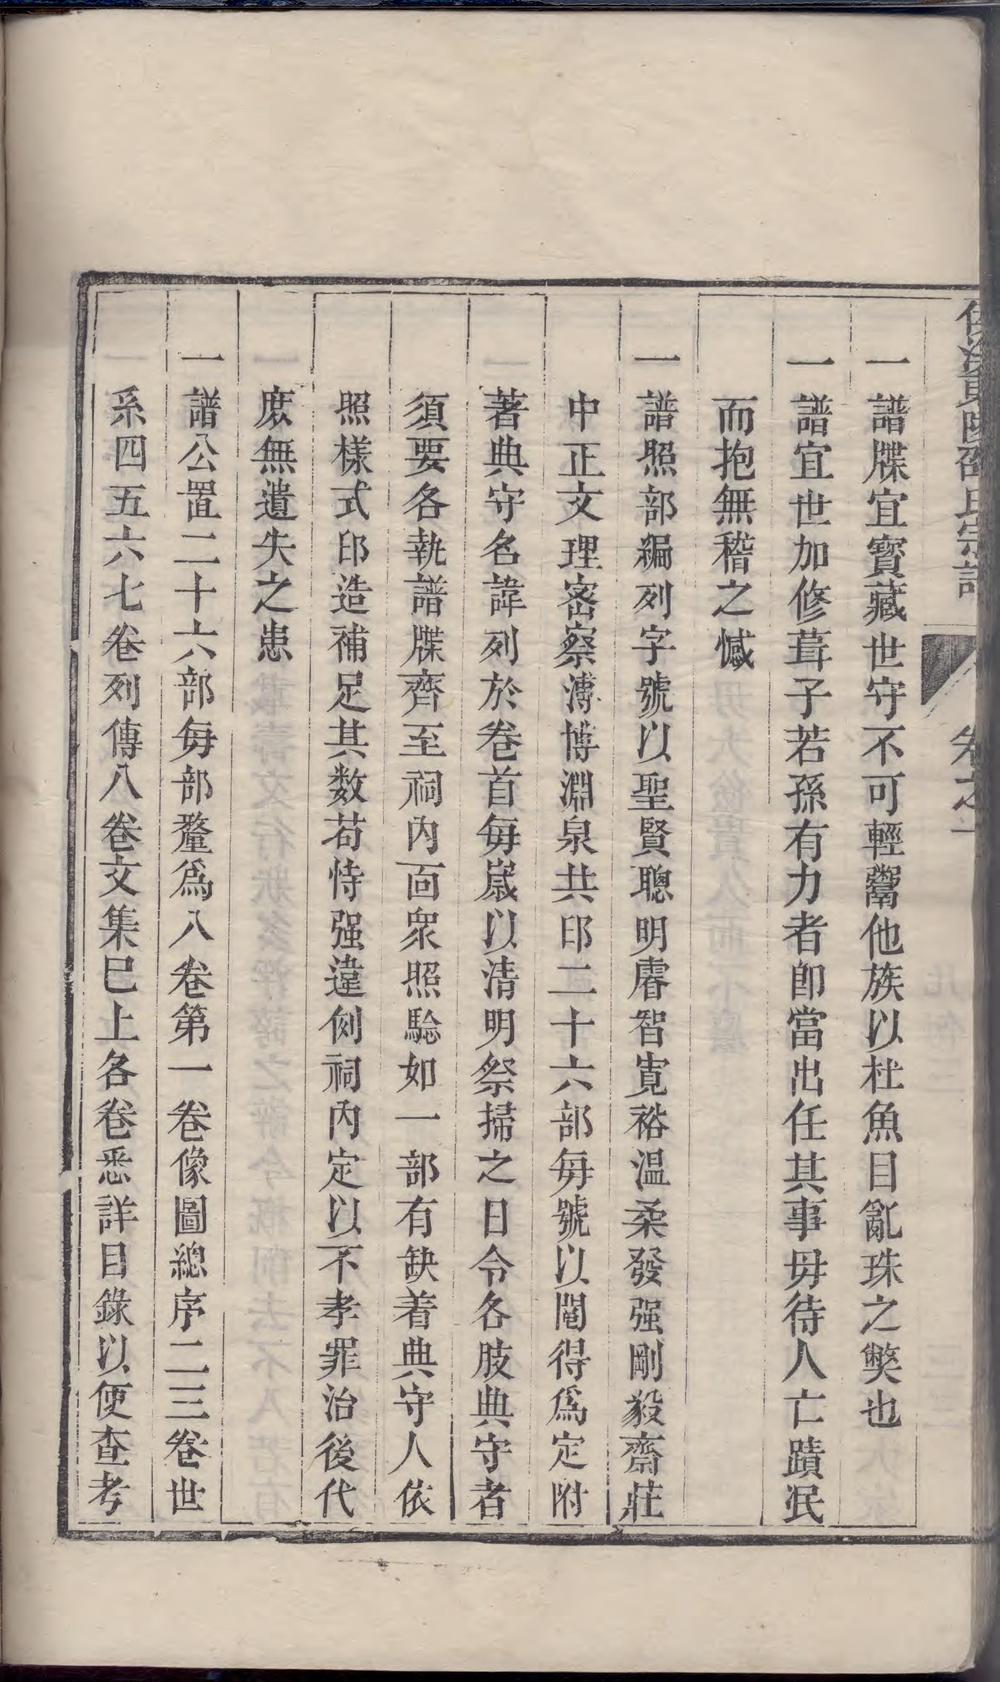 邵氏宗譜
卷之一
一譜牒宜寳藏世守不可輕鬻他族以杜魚目亂珠之獘也
一譜宜世加修葺子若孫有力者卽當出任其事毋待人亡蹟泯
而抱無稽之憾
一譜照部編列字號以聖賢聰明睿智寬裕溫柔發强剛毅齋莊
中正文理密察溥博淵泉共印二十六部每號以鬮得爲定附
著典守名諱列於卷首每嵗以清明祭掃之日令各肢典守者
須要各執譜牒齊至祠内面衆照騐如一部有缺着典守人依
照樣式印造補足其数苟恃强違例祠内定以不孝罪治後代
庶無遺失之患
一譜公置二十六部每部釐爲八卷第一卷像圖總序二三卷世
系四五六七卷列傳八卷文集已上各卷悉詳目錄以便查考